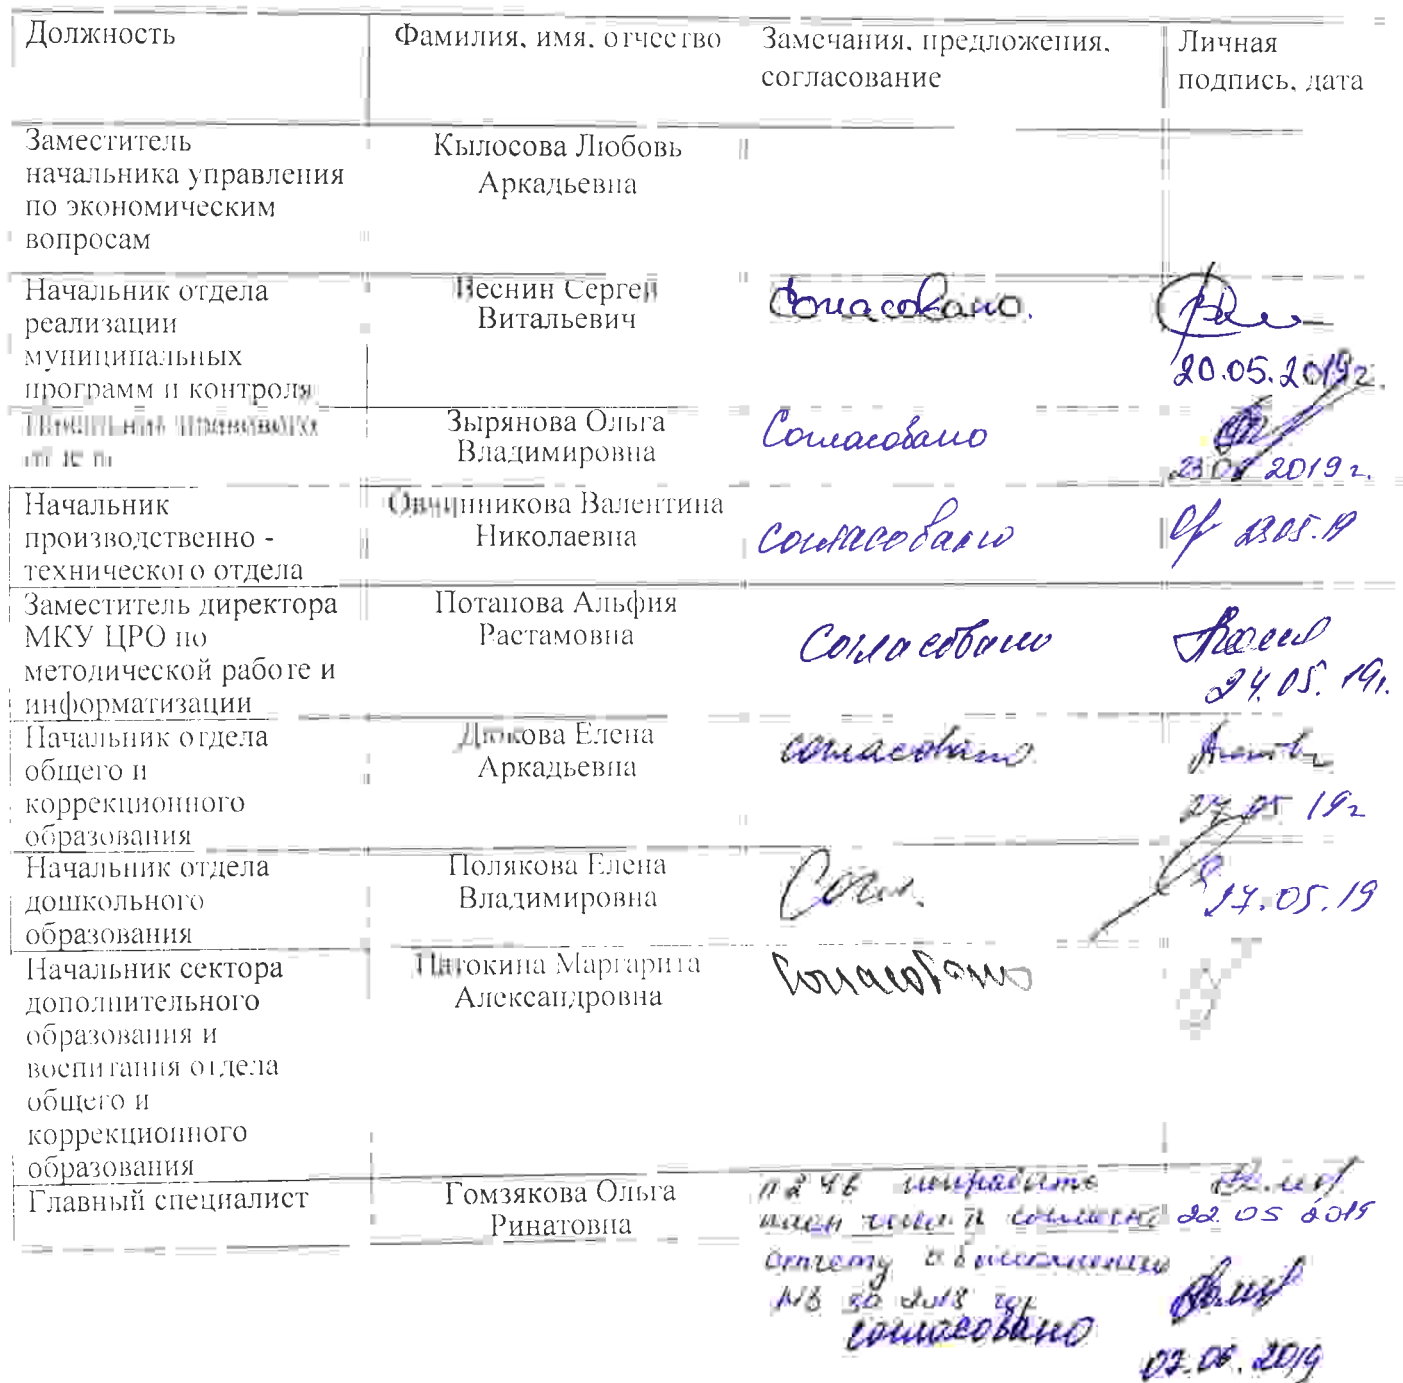 Должность
Фамилия, имя, отчество
Замечания, предложения,
согласование
Личная
подпись, дата
Заместитель
начальника управления
по экономическим
вопросам
Кылосова Любовь
Аркадьевна
Начальник отдела
реализации
муниципальных
программ и контроля
Веснин Сергей
Витальевич
Согласовано.
20.05.2019г.
Зырянова Ольга
Владимировна
Согласовано
2019 г.
Начальник
производственно -
технического отдела
Овчинникова Валентина
Николаевна
согласовано
23.05.19
Заместитель директора
МКУ ЦРО по
методической работе и
информатизации
Потапова Альфия
Растамовна
Согласовано
24.05.19г.
Начальник отдела
общего и
коррекционного
образования
Елена
Аркадьевна
согласовано
27 05 19г
Начальник отдела
дошкольного
образования
Полякова Елена
Владимировна
Согл.
27.05.19
Начальник сектора
дополнительного
образования и
воспитания отдела
общего и
коррекционного
образования
Маргарита
Александровна
Согласовано
Главный специалист
Гомзякова Ольга
Ринатовна
22 05 2019
отчету о
за 2018 год
согласовано
2019